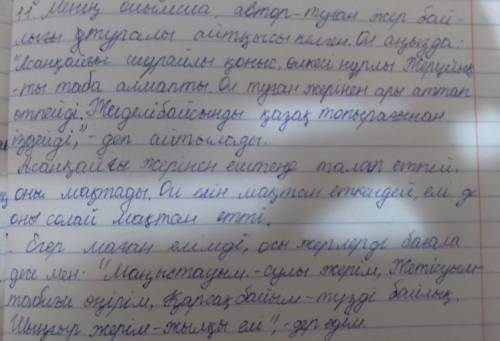 11. Менің ойымша автор-туған жер бай-
лығы туралы айтқысы келген. Ол аңызда:
"Асанқайғы шұрайлы қоныс, өлкей нұрлы Жерұйық
-ты таба алмапты. Ол туған жерінен ары аттап
өтпейді. Жиделібайсынды қазақ топырағынан
іздейді,"-деп айтылады.
Асанқайғы жерінен ештеңе талап етпей,
оны мақтады. Ол елін мақтан еткендей, ел де
оны солай мақтан етті.
Егер маған елімді, осы жерлерді бағала
десе мен: "Маңыстауым.-сулы жерім, Жетісуым-
табиғи өңірім, Қарсақбайым-түзді байлық.
Шыңғыр жерім-жылқы елі",-дер едім.